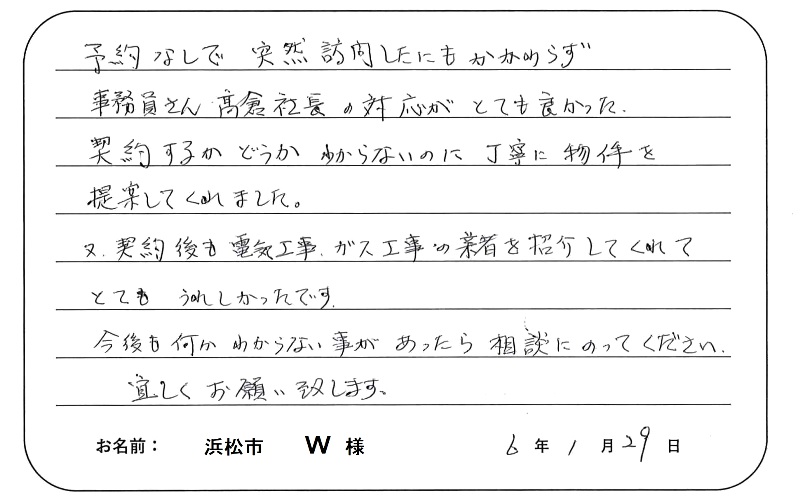 予約なしで 突然訪問したにもかかわらず
事務員さん、高倉社長の対応がとても良かった.
契約するかどうかわからないのに丁寧に物件を
提案してくれました。
又、契約後も電気工事、ガス工事の業者を紹介してくれて
とても うれしかったです.
今後も何かわからない事があったら相談にのってください.
宜しくお願い致します。
お名前： 浜松市 W 様 6 年 1 月 29 日